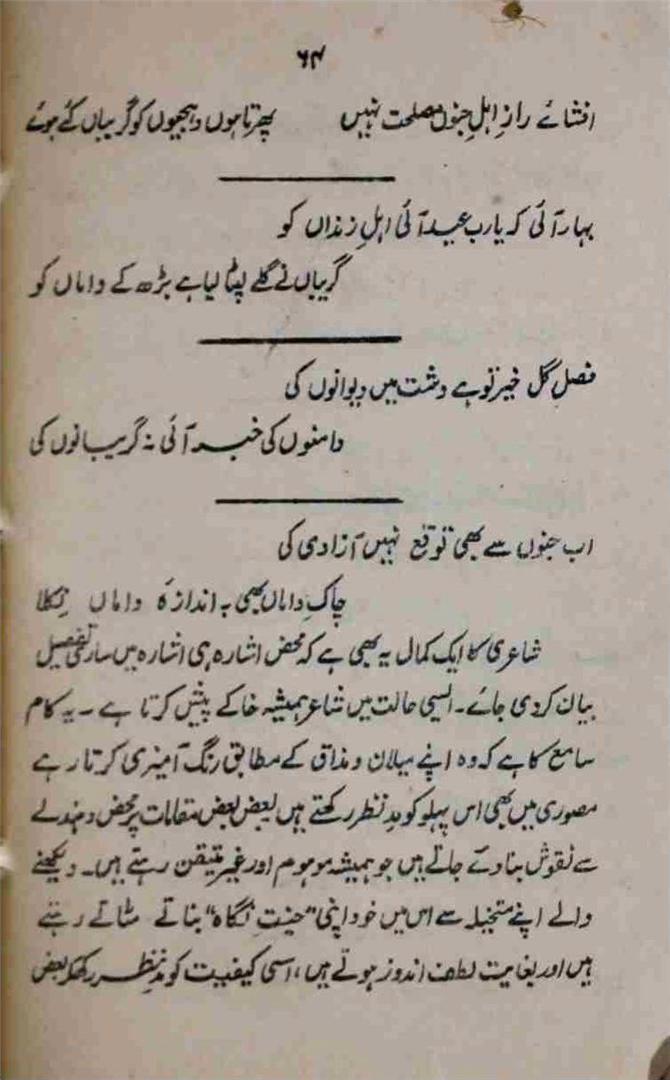 ۶۴
افشائے رازِ اہلِ جنوں مصلحت نہیں پھرتا ہوں دھجیوں کو گریباں کئے ہوئے
بہار آئی کہ یارب عید آئی اہلِ زنداں کو
گریباں نے گلے لپٹا لیا ہے بڑھ کے داماں کو
فصلِ گل خیر تو ہے دشت میں دیوانوں کی
دامنوں کی خبر آئی نہ گریبانوں کی
اب جنوں سے بھی توقع نہیں آزادی کی
چاکِ داماں بھی بہ اندازۂ داماں نکلا
شاعری کا ایک کمال یہ بھی ہے کہ محض اشارہ ہی اشارہ میں ساری تفصیل
بیان کردی جائے۔ ایسی حالت میں شاعر ہمیشہ خاکے پیش کرتا ہے۔ یہ کام
سامع کا ہے کہ وہ اپنے میلان و مذاق کے مطابق رنگ آمیزی کرتا رہے
مصوری میں بھی اس پہلو کو مدِ نظر رکھتے ہیں بعض بعض مقامات پر محض دھندلے
سے نقوش بنا دے جاتے ہیں جو ہمیشہ موہوم اور غیر متیقن رہتے ہیں۔ دیکھنے
والے اپنے متخیلہ سے اس میں خود اپنی "جنتِ نگاہ" بناتے مٹاتے رہتے
ہیں اور بغایت لطف اندوز ہوتے ہیں، اسی کیفیت کو مدِ نظر رکھکر بعض